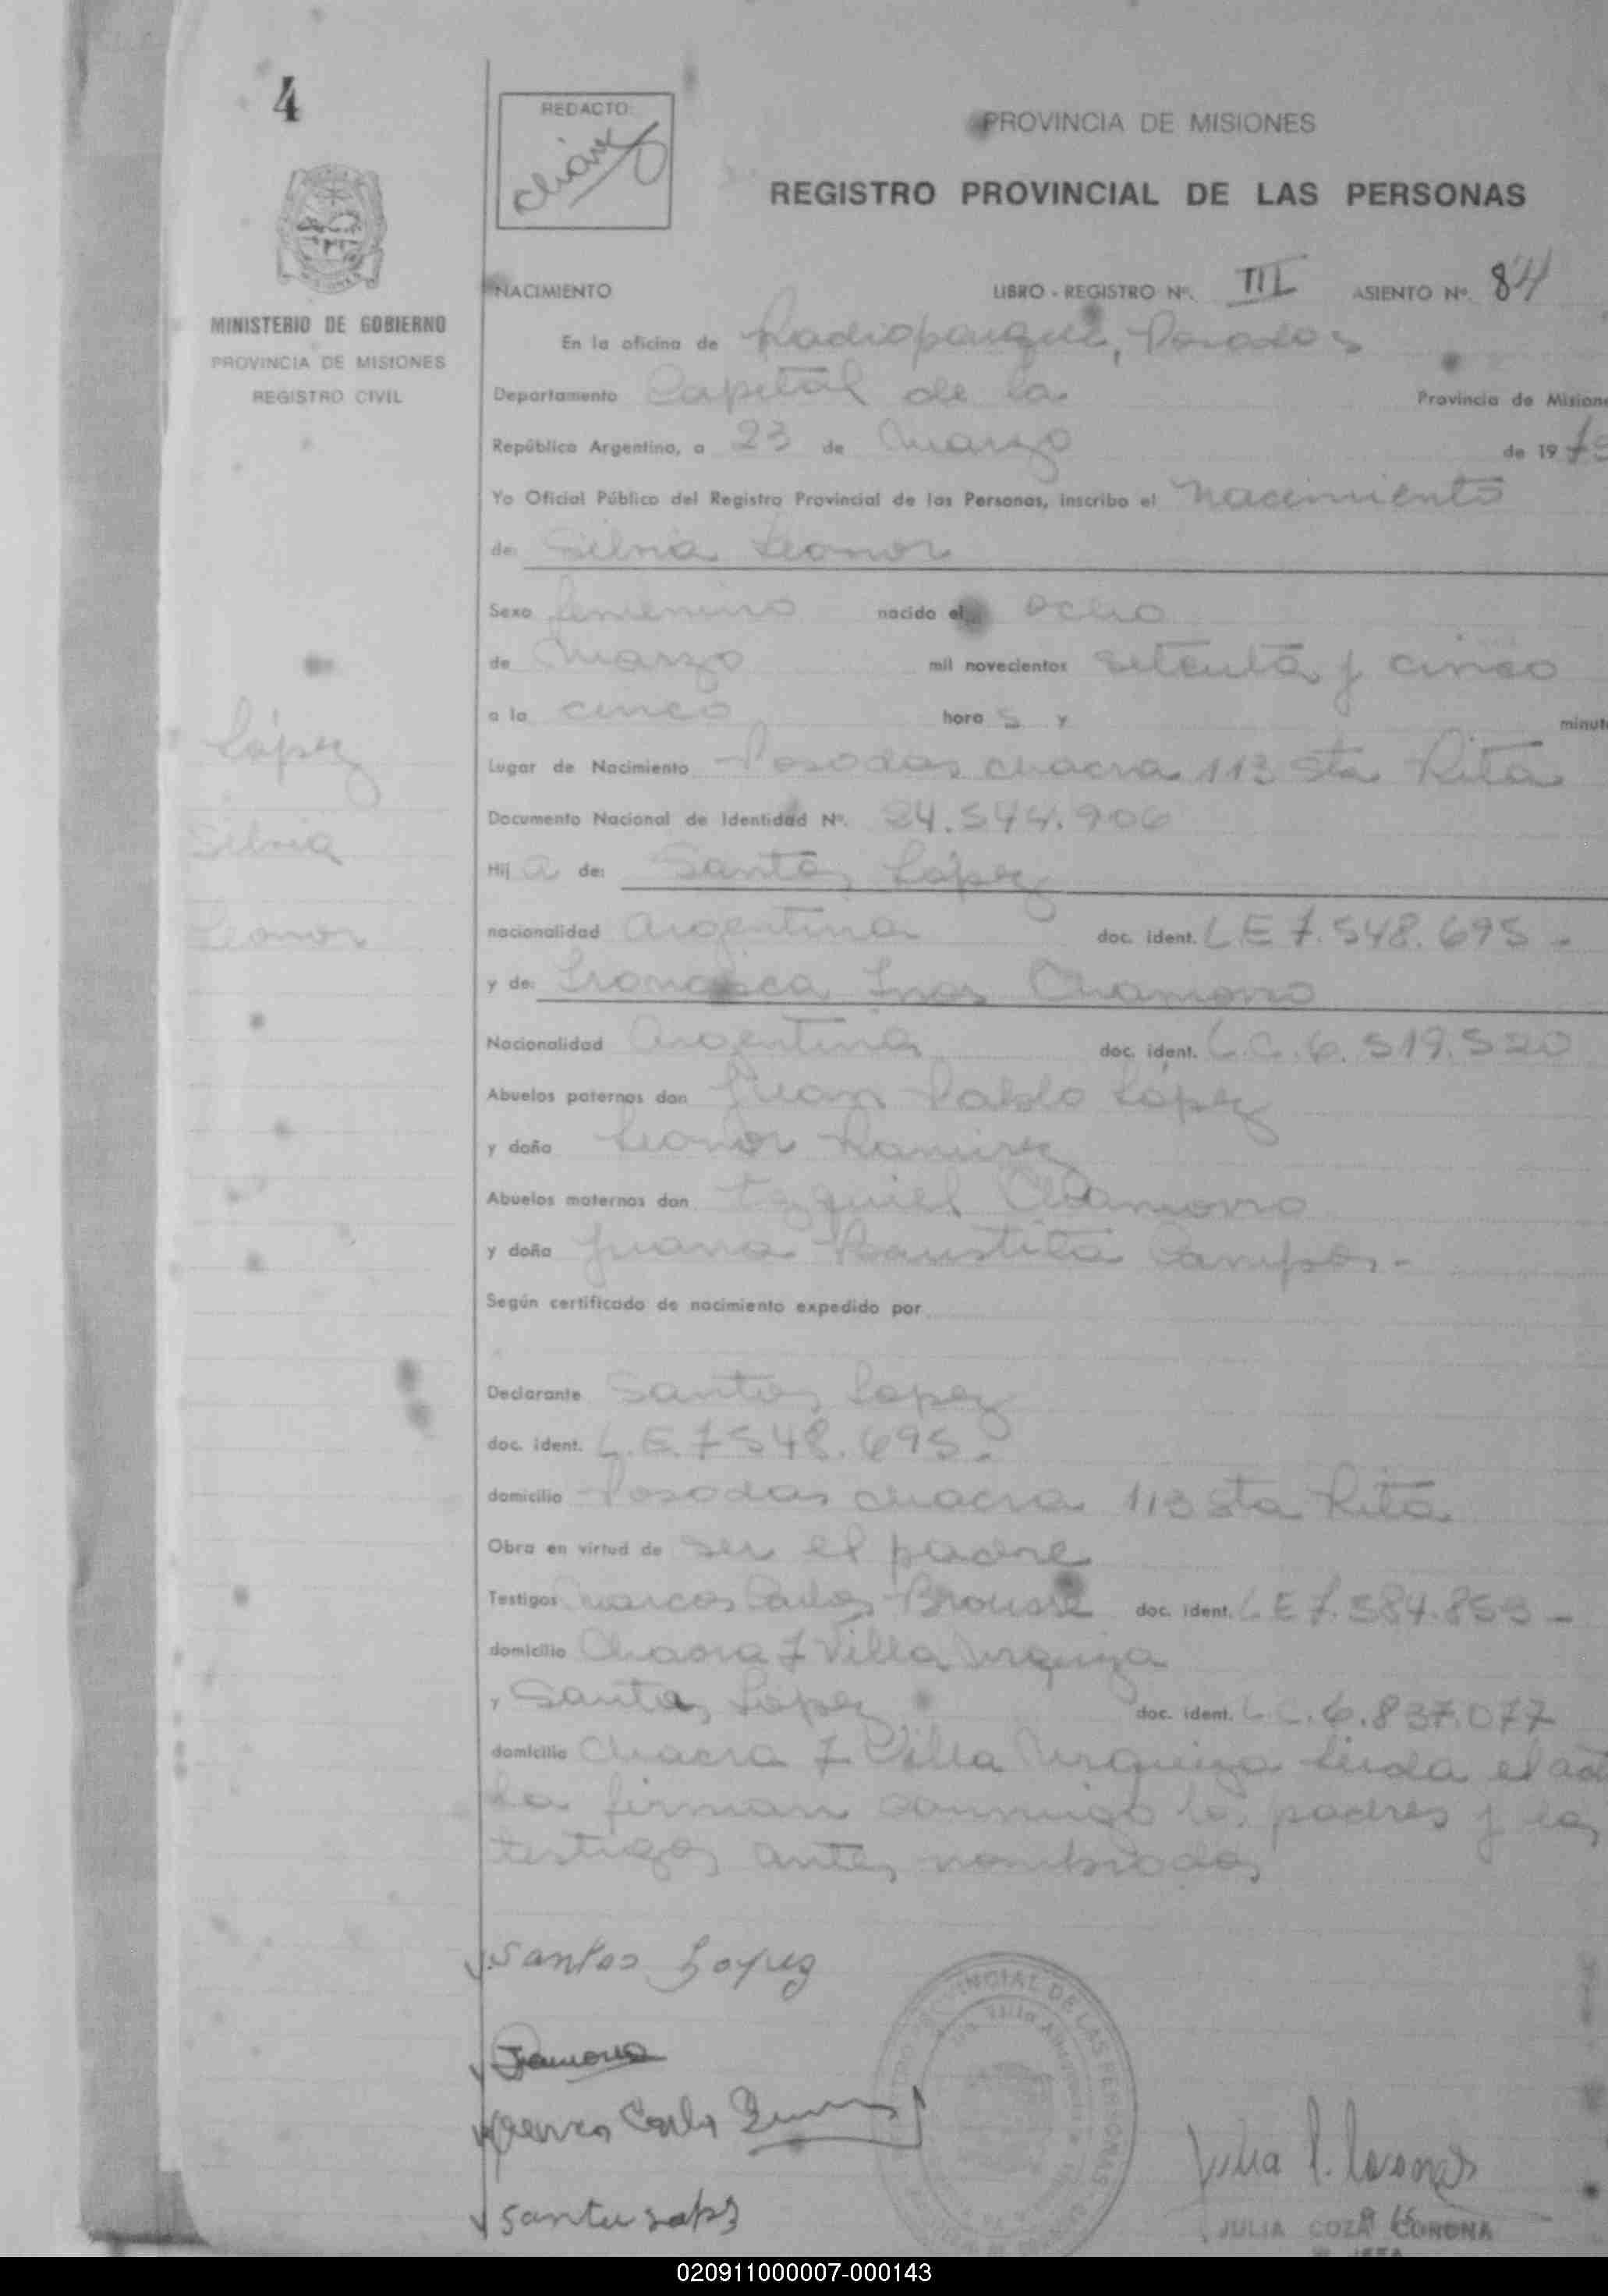 4
REDACTO:
PROVINCIA DE MISIONES
REGISTRO PROVINCIAL DE LAS PERSONAS
MINISTERIO DE GOBIERNO
PROVINCIA DE MISIONES
REGISTRO CIVIL
NACIMIENTO LIBRO - REGISTRO Nº. III ASIENTO Nº. 84
En la oficina de Radioparque, Posadas
Departamento Capital de la Provincia de Mision
República Argentina, a 23 de Marzo de 19 75
Yo Oficial Público del Registro Provincial de las Personas, inscribo el Nacimiento
de: Silvia Leonor
Sexo femenino nacido el ocho
de Marzo mil novecientos setenta y cinco
a la cinco hora s y minut
López
Silvia
Leonor
Lugar de Nacimiento Posadas chacra 113 Sta Rita
Documento Nacional de Identidad Nº. 24.544.906
Hij a de: Santos López
nacionalidad Argentina doc. ident. L.E 7.548.695 -
y de: Francisca Ines Chamorro
Nacionalidad Argentina doc. ident. L.C. 6.519.520
Abuelos paternos don Juan Pablo López
y doña Leonor Ramirez
Abuelos maternos don Ezquiel Chamorro
y doña Juana Baustita Campos -
Según certificado de nacimiento expedido por
Declarante Santos Lopez
doc. ident. L.E. 7548.695.
domicilio Posadas chacra 113 Sta Rita
Obra en virtud de ser el padre
Testigos Marcos Carlos doc. ident. L E 7.584.853 -
domicilio Chacra 7 Villa Urquiza
y Santa Lopez doc. ident. L.C. 6.837.077
domicilio Chacra 7 Villa Urquiza Leida el act
la firman conmigo los padres y los
testigos antes nombrados
Santos Lopez
Carlos
Santa
PROVINCIAL DE LAS PERSONAS
JULIA COZA CORONA
JEFA
020911000007-000143